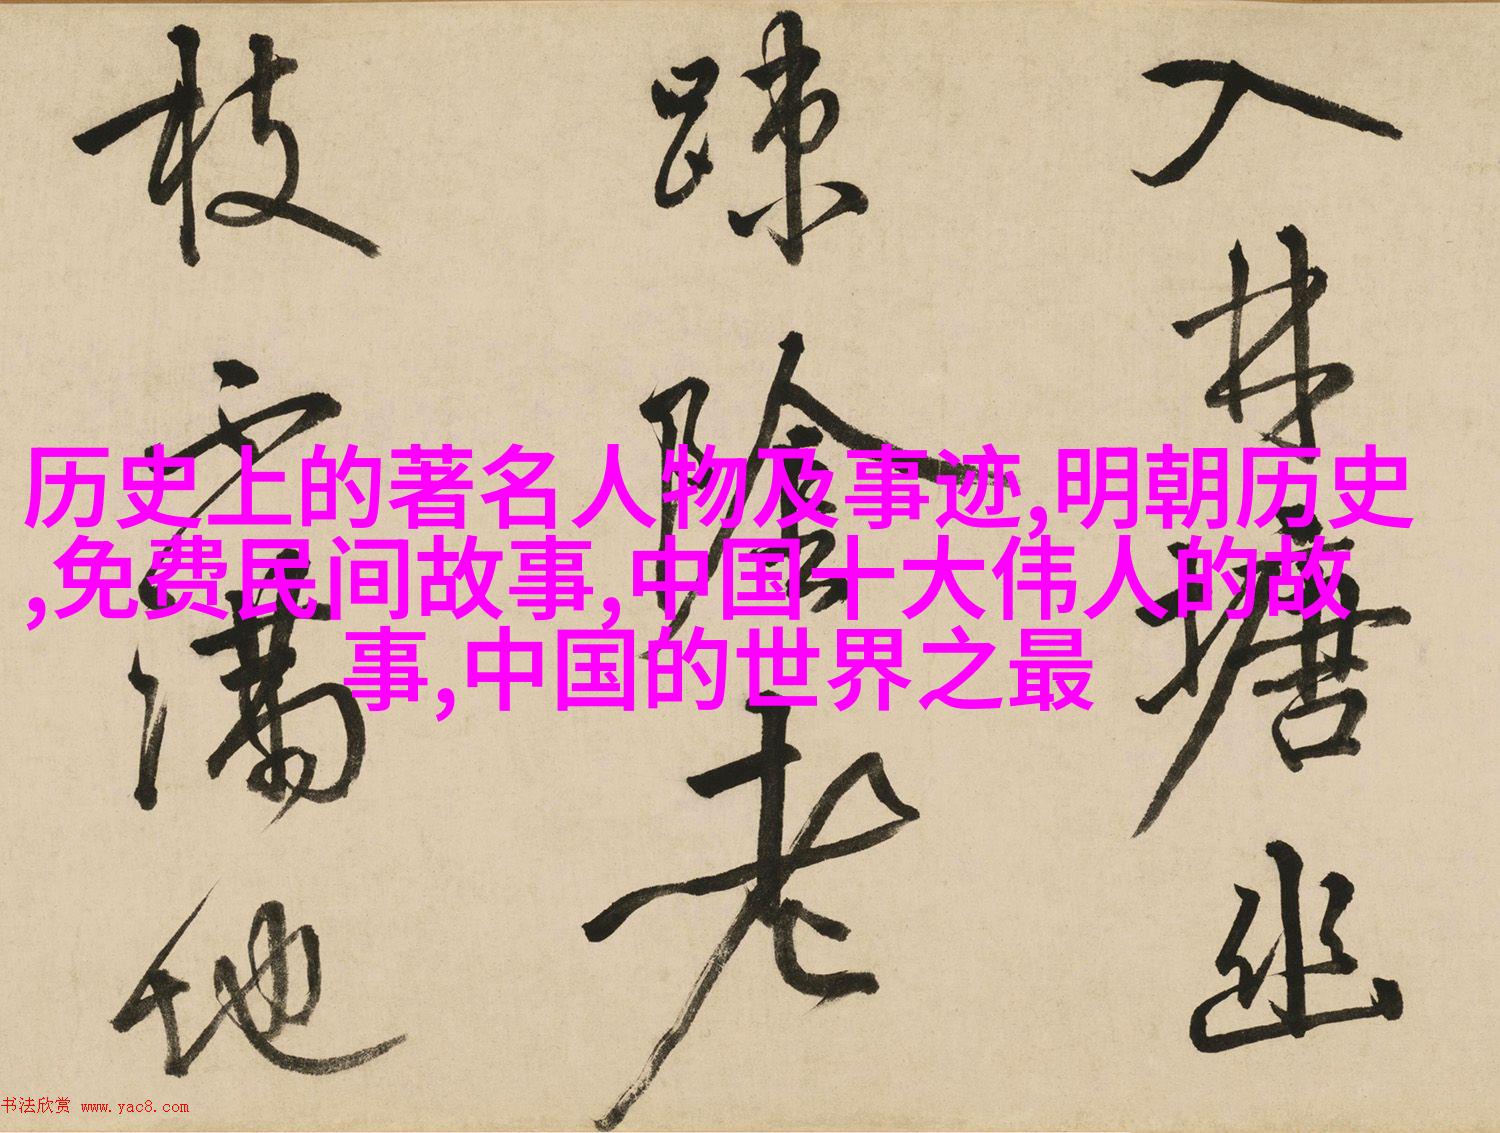 入林塘幽
踈陰老
枝雨滿地
历史上的著名人物及事迹,明朝历史
,免费民间故事,中国十大伟人的故
事,中国的世界之最
书法欣赏 www.yac8.com